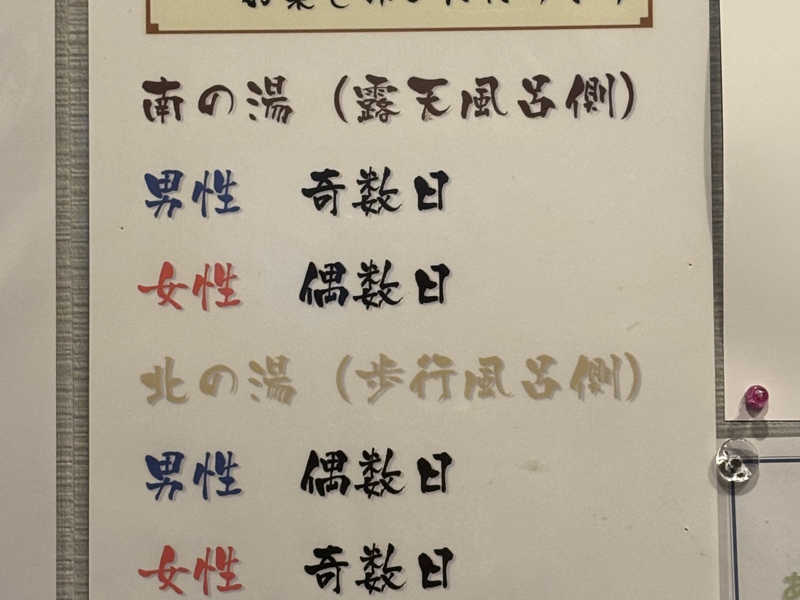 南の湯（露天風呂側）
男性　奇数日
女性　偶数日
北の湯（歩行風呂側）
男性　偶数日
女性　奇数日